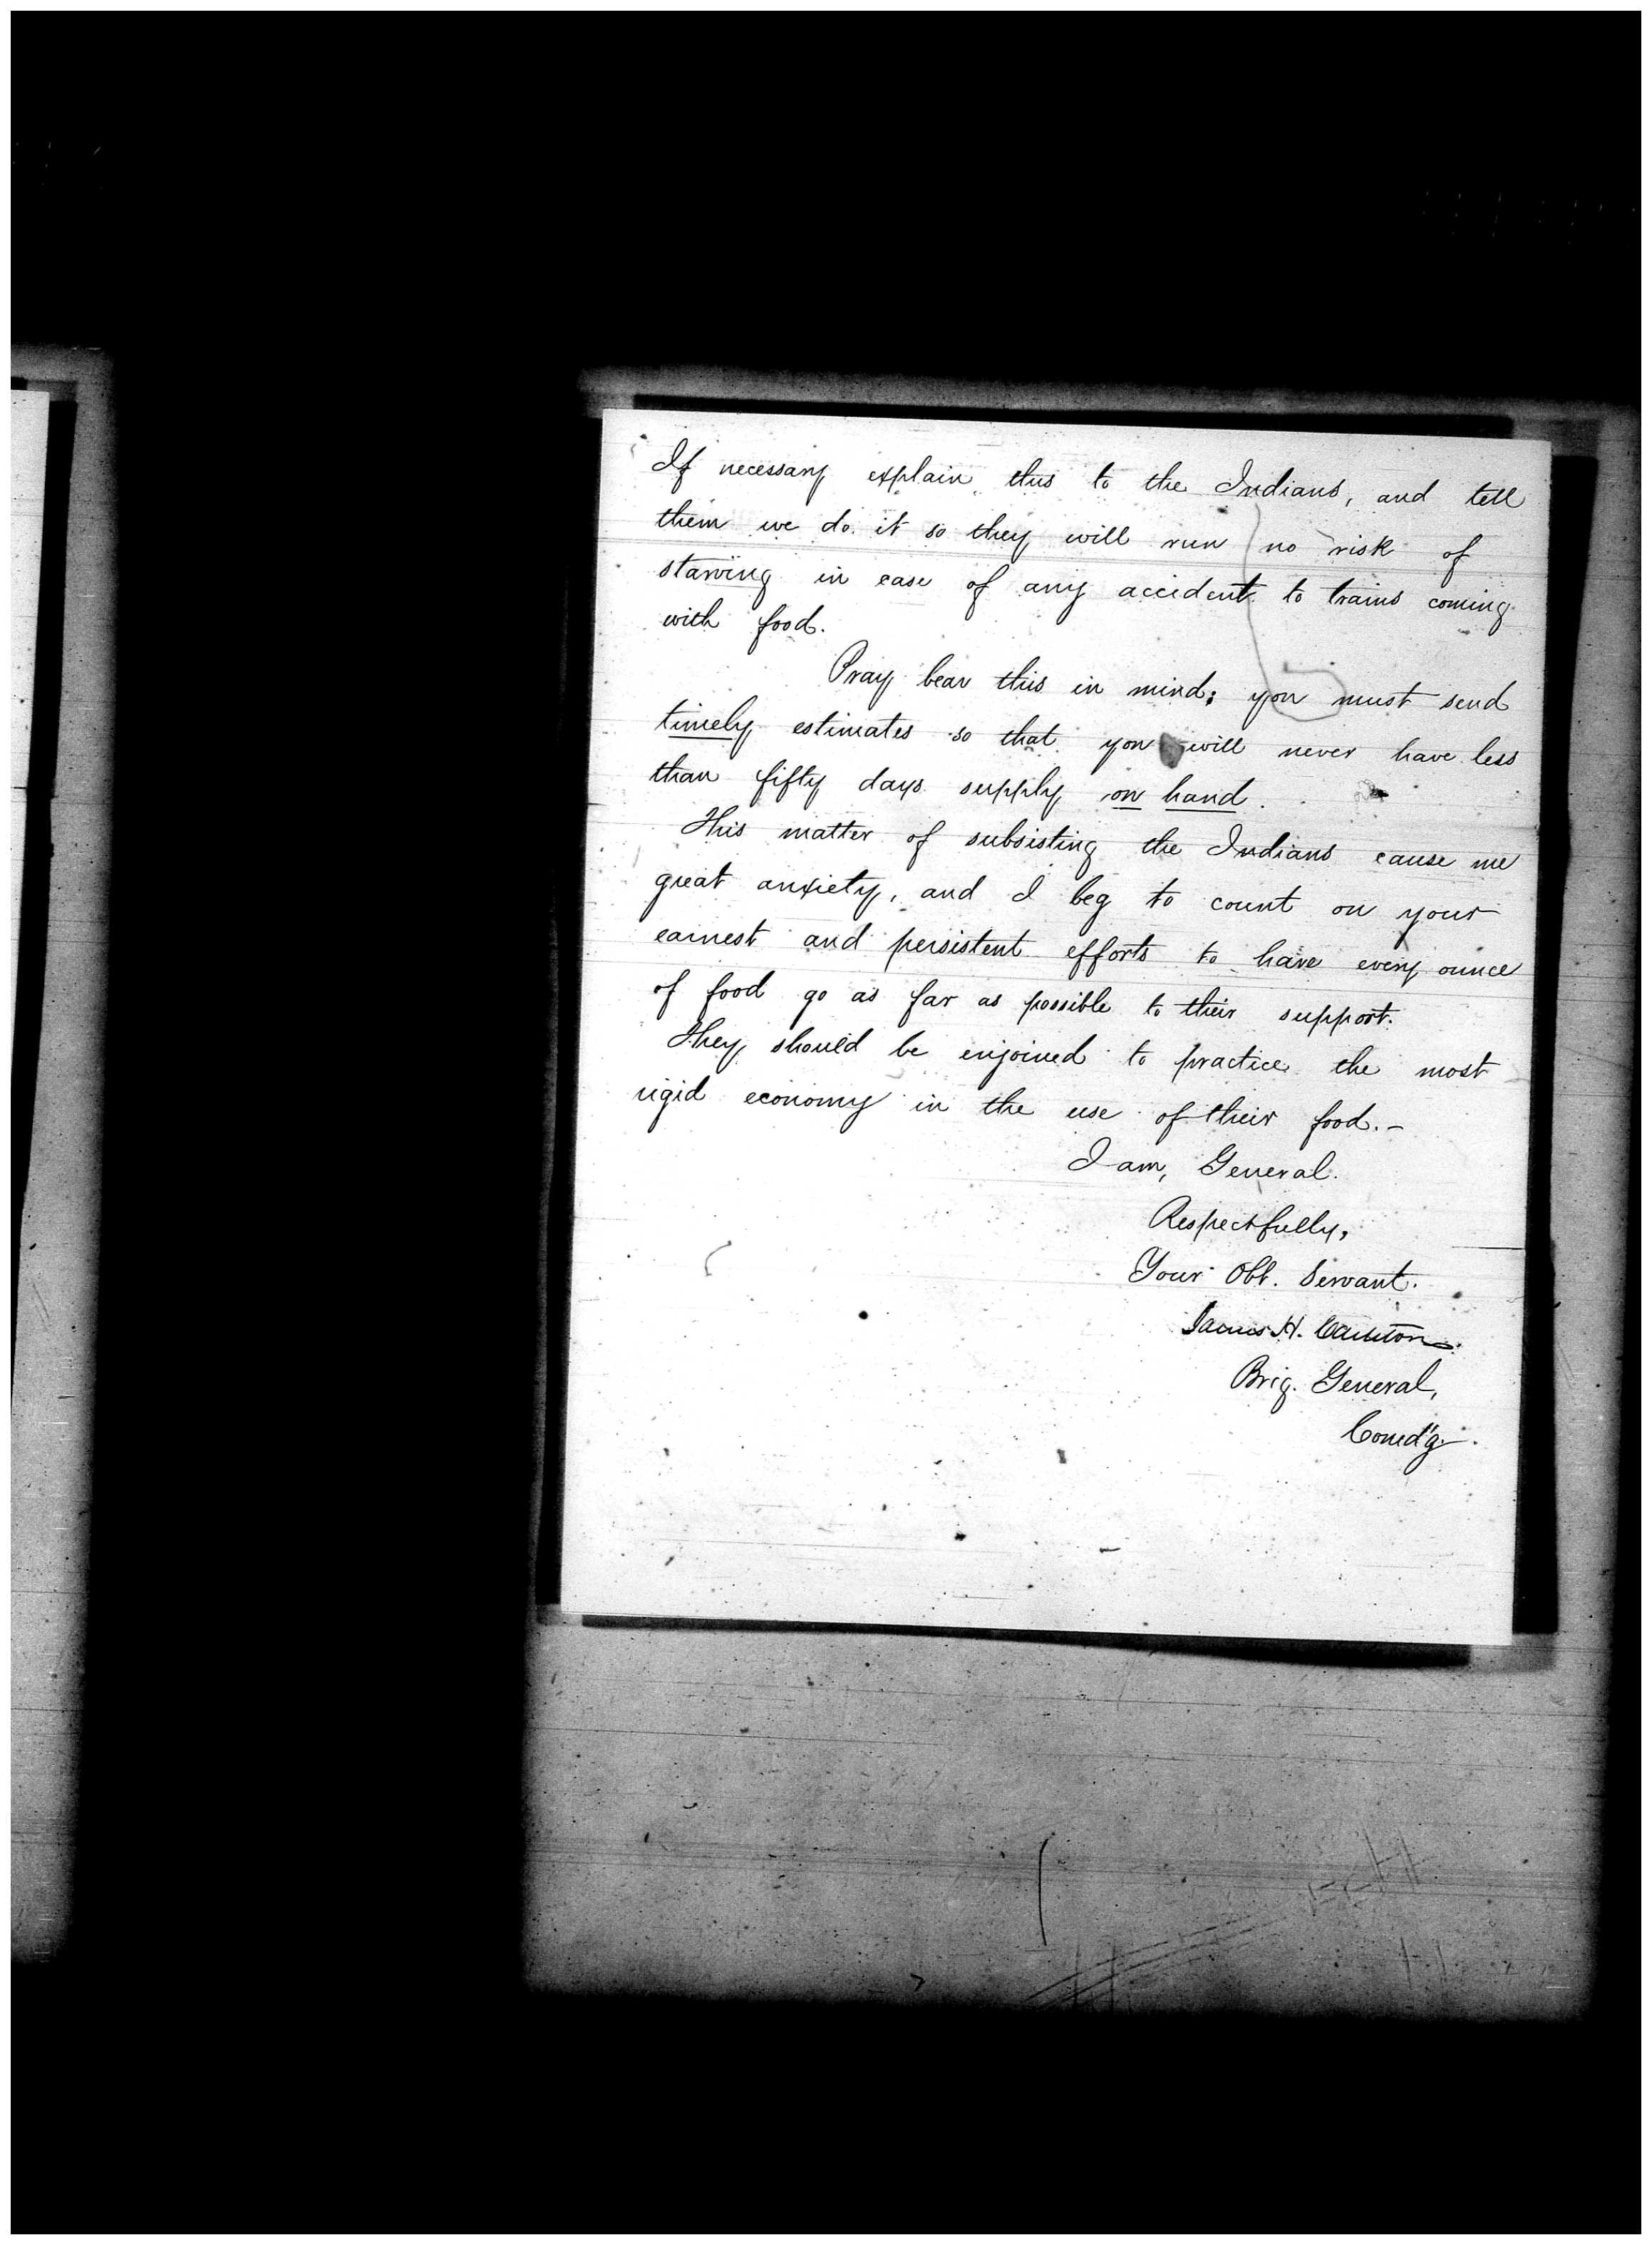 If necessary explain this to the Indians, and tell
them we do it so they will run no risk of
starving in case of any accident to trains coming
with food.
Pray bear this in mind; you must send
timely estimates so that you will never have less
than fifty days supply on hand.
This matter of subsisting the Indians cause me
great anxiety, and I beg to count on your
earnest and persistent efforts to have every ounce
of food go as far as possible to their support.
They should be enjoined to practice the most
rigid economy in the use of their food.-
I am, General.
Respectfully,
Your Obt. Servant.
James H. Carleton
Brig. General,
Comd'g.